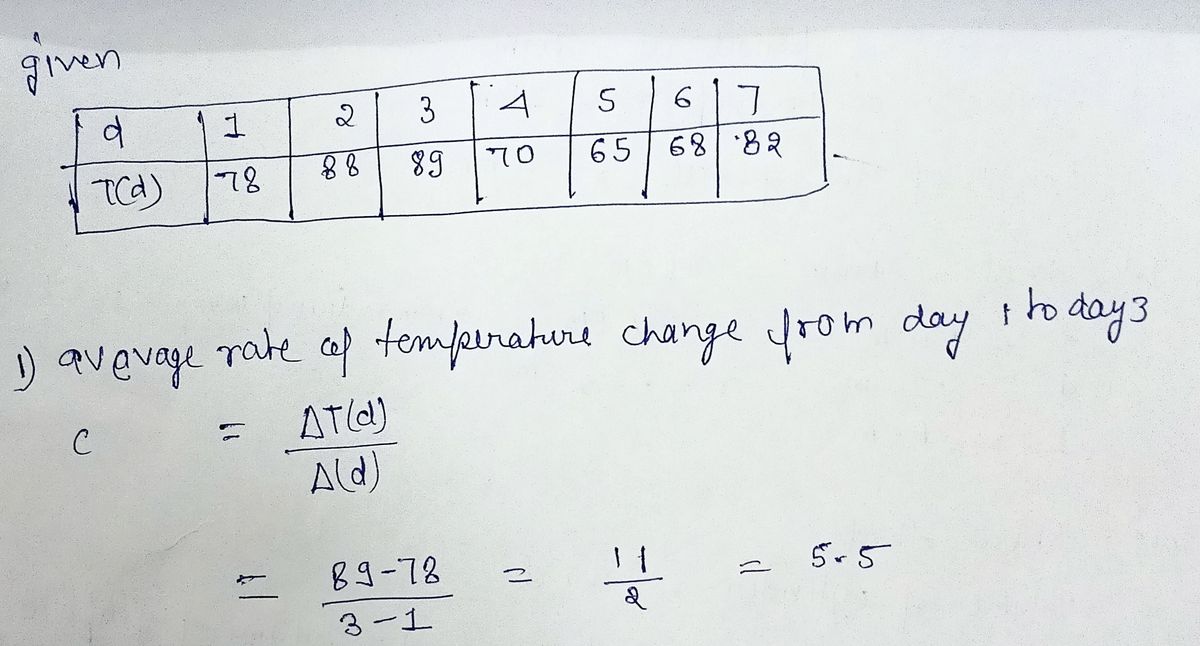 given
d 1 2 3 4 5 6 7
T(d) 78 88 89 70 65 68 82
1) avavage rate of temperature change from day 1 to day 3
C = ΔT(d)
Δ(d)
= 89-78 = 11 = 5.5
3-1 2